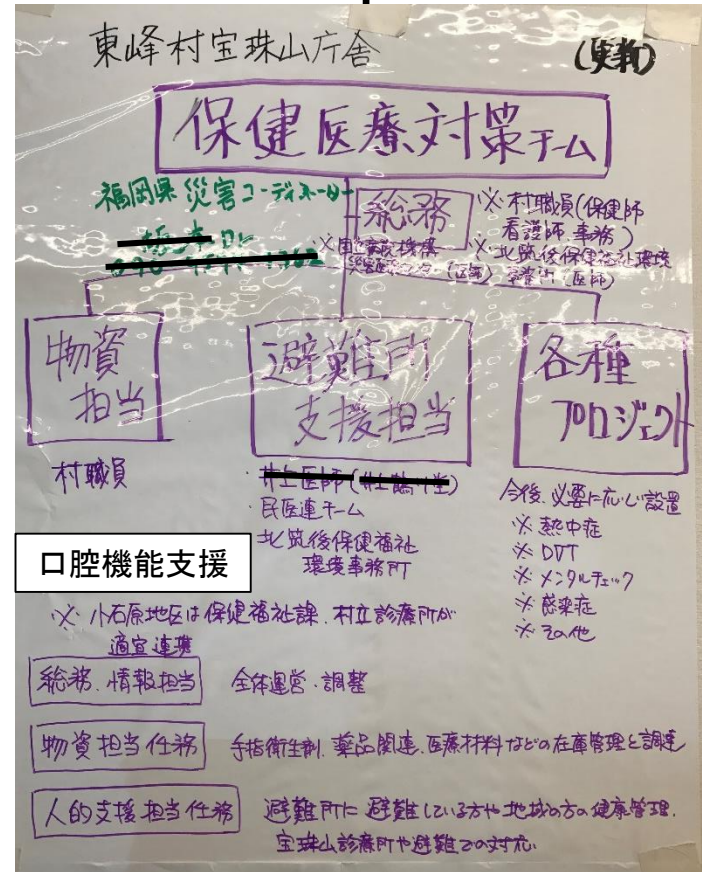 東峰村宝珠山庁舎
保健医療対策チーム
福岡県災害コーディネーター
Dr
総務
※村職員(保健師
看護師 事務)
※国立病院機構
災害医療センター(医師)
※北筑後保健福祉環境
事務所(医師)
物資
担当
避難所
支援担当
各種
プロジェクト
村職員
民医連チーム
北筑後保健福祉
環境事務所
今後、必要に応じ設置
※熱中症
※DVT
※メンタルチェック
※感染症
※その他
口腔機能支援
※小石原地区は保健福祉課、村立診療所が
適宜連携
総務、情報担当 全体運営・調整
物資担当任務 手指衛生剤、薬品関連、医療材料などの在庫管理と調達
人的支援担当任務 避難所に避難している方や地域の方の健康管理、
宝珠山診療所や避難での対応